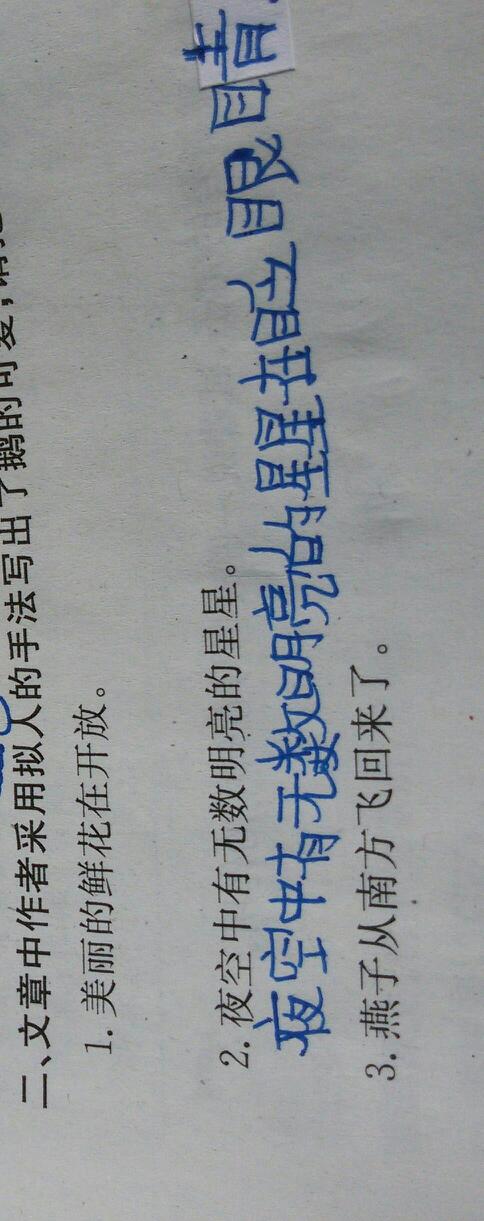 二、文章中作者采用拟人的手法写出了鹅的可爱,请把
1. 美丽的鲜花在开放。
2. 夜空中有无数明亮的星星。
夜空中有无数明亮的星星在眨眼睛.
3. 燕子从南方飞回来了。